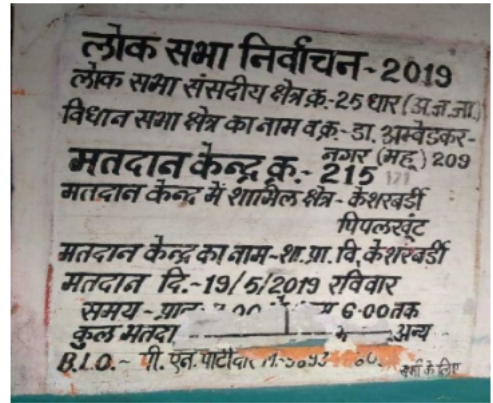 लोक सभा निर्वाचन-2019
लोक सभा संसदीय क्षेत्र क्र.-25 धार (अ.ज.जा.)
विधान सभा क्षेत्र का नाम व क्र.-डा. अम्बेडकर-
नगर (महू) 209
मतदान केन्द्र क्र.- 215
मतदान केन्द्र में शामिल क्षेत्र- केशरबर्डी
पिपलखुंट
मतदान केन्द्र का नाम-शा.प्रा.वि. केशरबर्डी
मतदान दि.-19/5/2019 रविवार
समय- 6.00 तक
कुल मतदा अन्य -
B.L.O.- पी. एन. पाटीदार
सभी के लिए